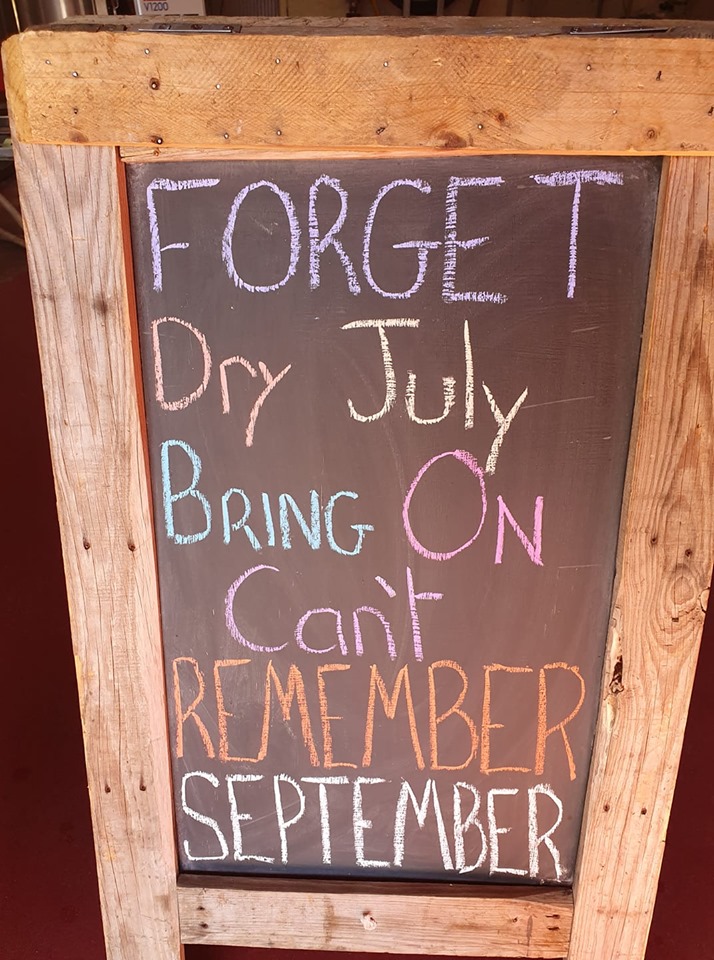 V1200
FORGET
Dry July
BRING ON
Can't
REMEMBER
SEPTEMBER